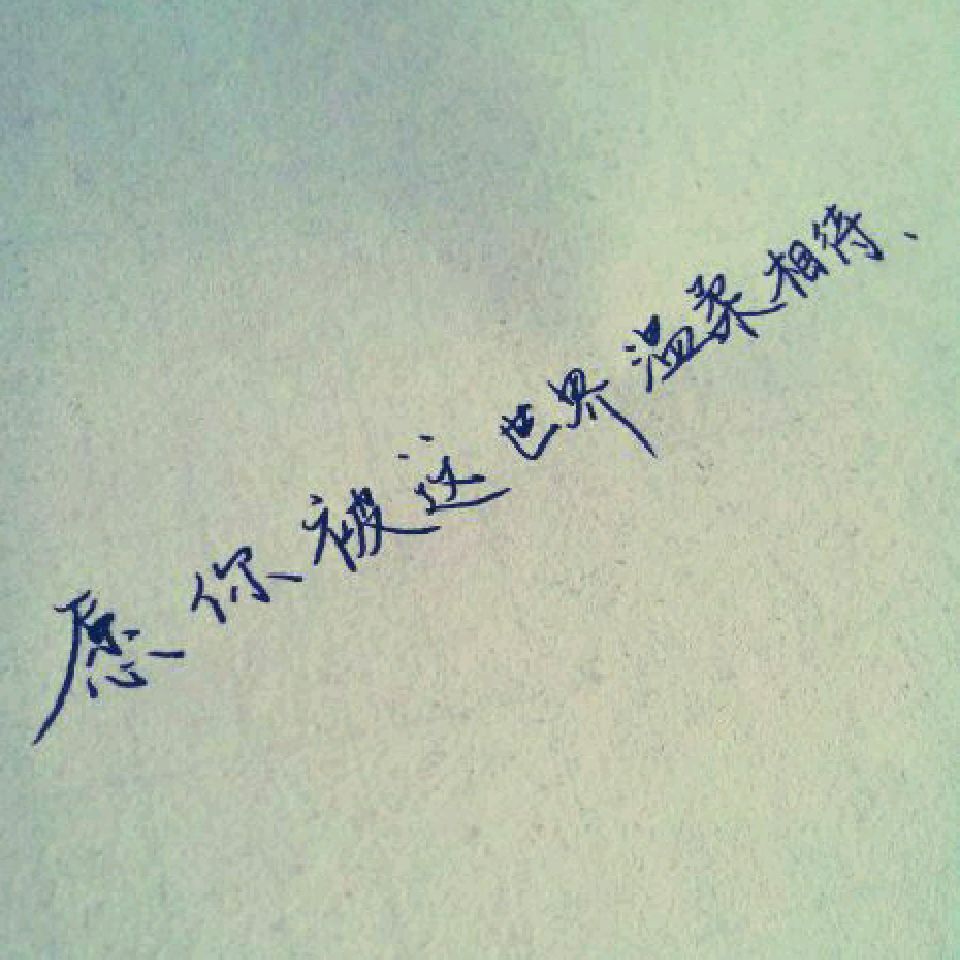 愿你被这世界温柔相待、